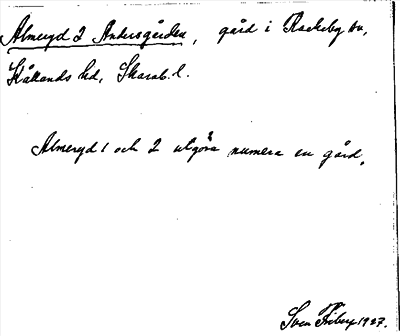 Almeryd 2 Andersgården, gård i Rackeby sn,
Kållands hd, Skarab. l.
Almeryd 1 och 2 utgöra numera en gård.
Sven Friberg 1927.